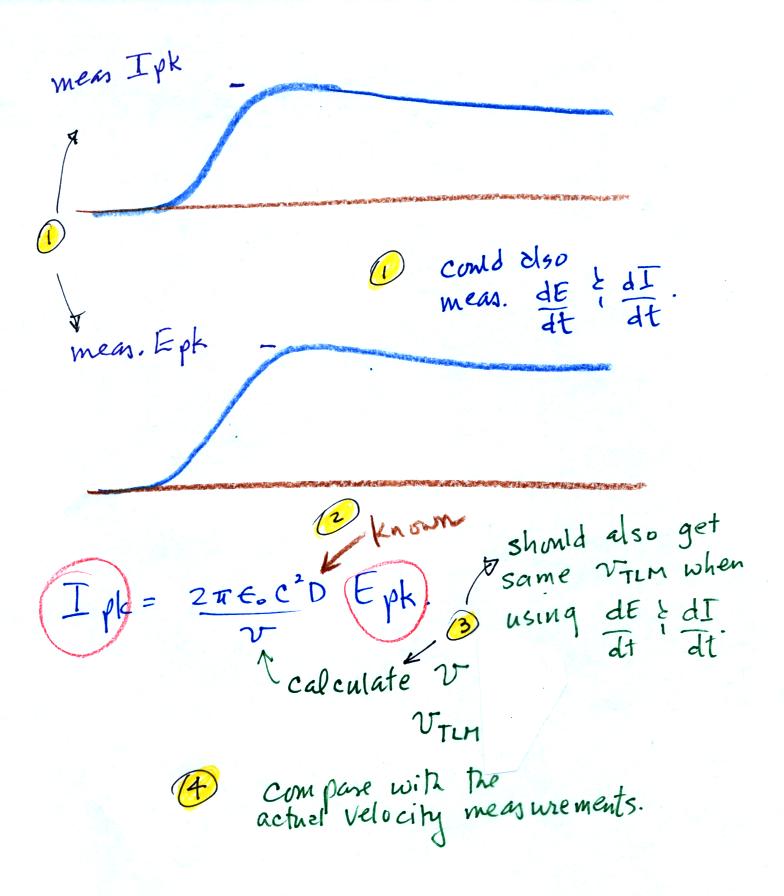 meas I pk
1
1 could also
meas. dE/dt & dI/dt.
meas. E pk
2
known
I pk = 2πε₀c²D/v E pk.
3
should also get
same v_TLM when
using dE/dt & dI/dt.
calculate v
v_TLM
4 compare with the
actual velocity measurements.